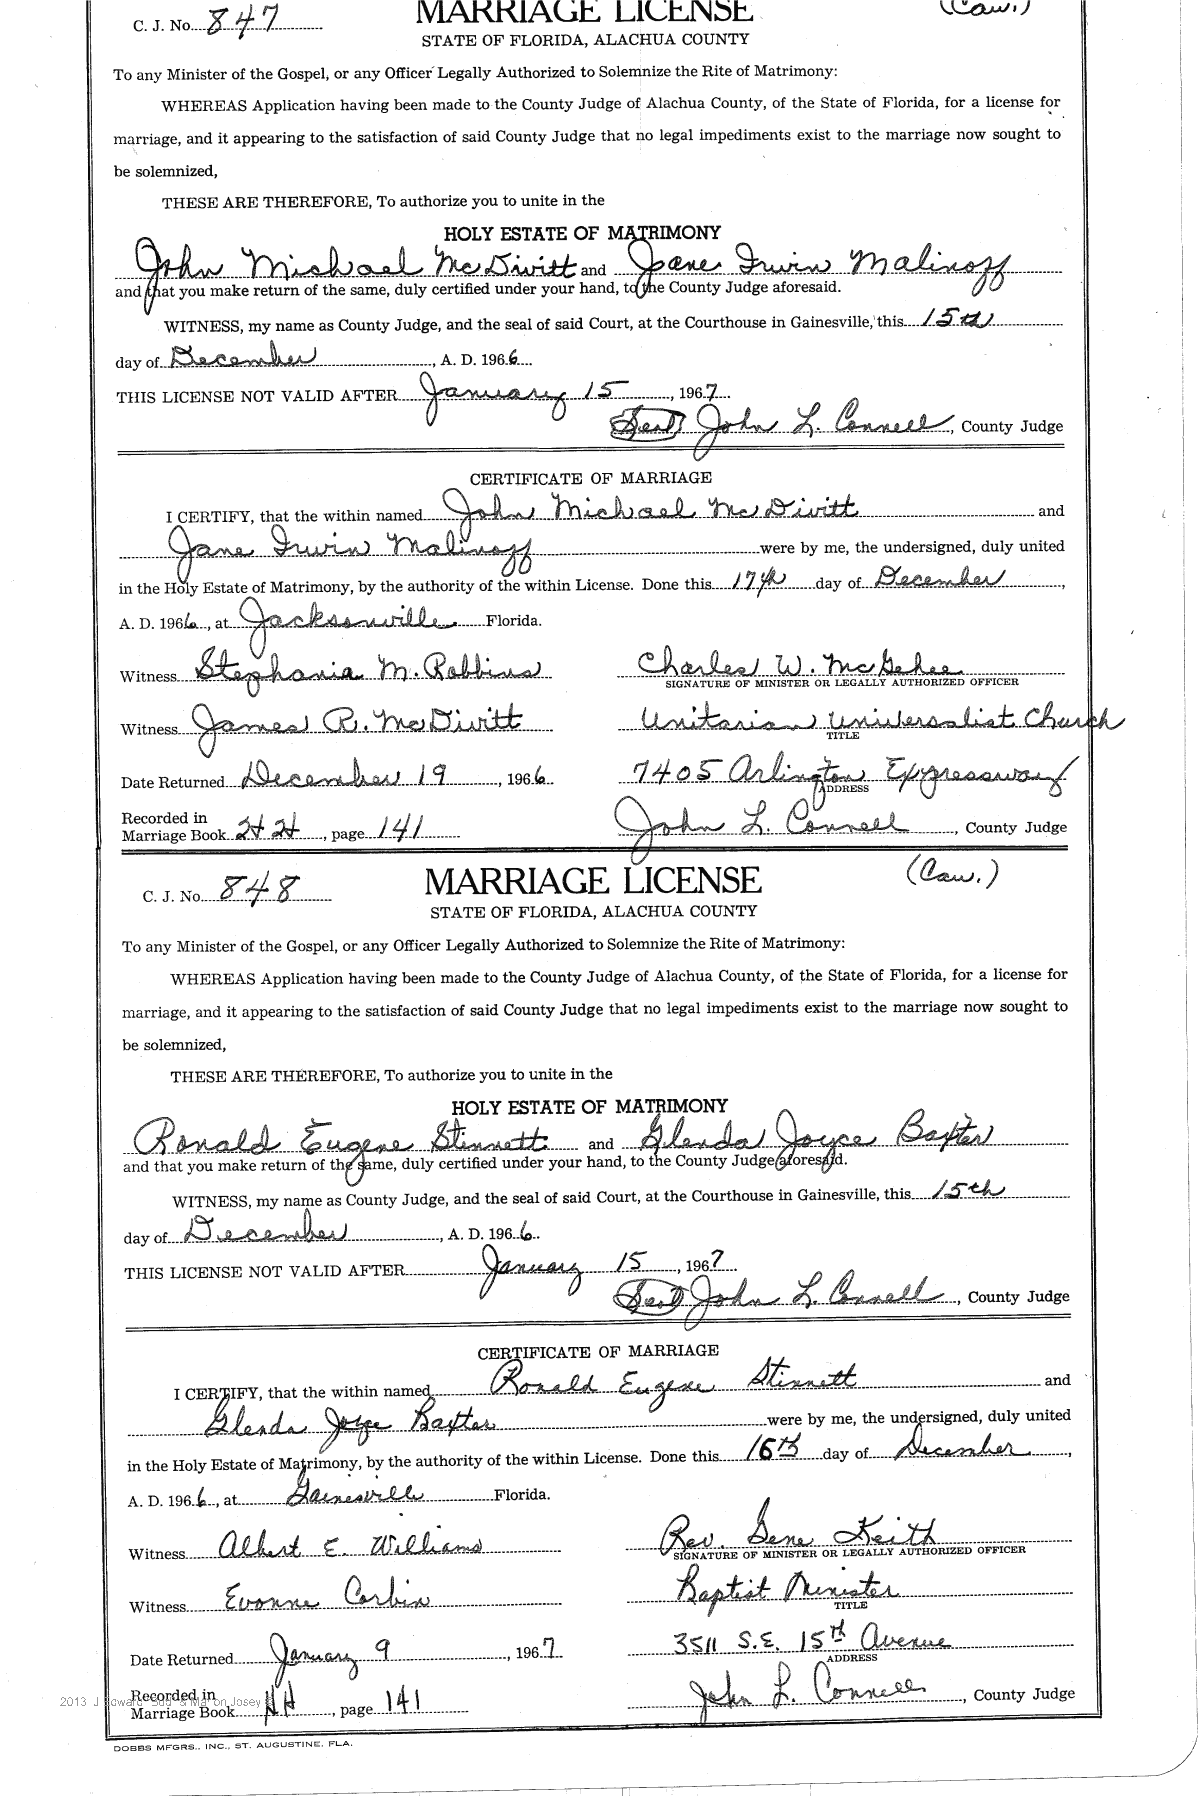 C. J. No. 847 MARRIAGE LICENSE (Caw.)
STATE OF FLORIDA, ALACHUA COUNTY
To any Minister of the Gospel, or any Officer Legally Authorized to Solemnize the Rite of Matrimony:
WHEREAS Application having been made to the County Judge of Alachua County, of the State of Florida, for a license for
marriage, and it appearing to the satisfaction of said County Judge that no legal impediments exist to the marriage now sought to
be solemnized,
THESE ARE THEREFORE, To authorize you to unite in the
HOLY ESTATE OF MATRIMONY
John Michael McDivitt and Jane Irwin Malinoff
and that you make return of the same, duly certified under your hand, to the County Judge aforesaid.
WITNESS, my name as County Judge, and the seal of said Court, at the Courthouse in Gainesville, this 15th
day of December, A. D. 1966
THIS LICENSE NOT VALID AFTER January 15, 1967
(Seal) John L. Connell, County Judge
CERTIFICATE OF MARRIAGE
I CERTIFY, that the within named John Michael McDivitt and
Jane Irwin Malinoff were by me, the undersigned, duly united
in the Holy Estate of Matrimony, by the authority of the within License. Done this 17th day of December,
A. D. 1966, at Jacksonville Florida.
Witness Stephania M. Robbins Charles W. McGehee
SIGNATURE OF MINISTER OR LEGALLY AUTHORIZED OFFICER
Witness James R. McDivitt Unitarian Universalist Church
TITLE
Date Returned December 19, 1966 7405 Arlington Expressway
ADDRESS
Recorded in
Marriage Book HH, page 141 John L. Connell, County Judge
C. J. No. 848 MARRIAGE LICENSE (Caw.)
STATE OF FLORIDA, ALACHUA COUNTY
To any Minister of the Gospel, or any Officer Legally Authorized to Solemnize the Rite of Matrimony:
WHEREAS Application having been made to the County Judge of Alachua County, of the State of Florida, for a license for
marriage, and it appearing to the satisfaction of said County Judge that no legal impediments exist to the marriage now sought to
be solemnized,
THESE ARE THEREFORE, To authorize you to unite in the
HOLY ESTATE OF MATRIMONY
Ronald Eugene Stinnett and Glenda Joyce Baxter
and that you make return of the same, duly certified under your hand, to the County Judge aforesaid.
WITNESS, my name as County Judge, and the seal of said Court, at the Courthouse in Gainesville, this 15th
day of December, A. D. 1966
THIS LICENSE NOT VALID AFTER January 15, 1967
(Seal) John L. Connell, County Judge
CERTIFICATE OF MARRIAGE
I CERTIFY, that the within named Ronald Eugene Stinnett and
Glenda Joyce Baxter were by me, the undersigned, duly united
in the Holy Estate of Matrimony, by the authority of the within License. Done this 16th day of December,
A. D. 1966, at Gainesville Florida.
Witness Albert E. Williams Rev. Gene Keith
SIGNATURE OF MINISTER OR LEGALLY AUTHORIZED OFFICER
Witness Evonne Corbin Baptist Minister
TITLE
Date Returned January 9, 1967 3511 S.E. 15th Avenue
ADDRESS
Recorded in
Marriage Book HH, page 141 John L. Connell, County Judge
DOBBS MFGRS., INC., ST. AUGUSTINE, FLA.